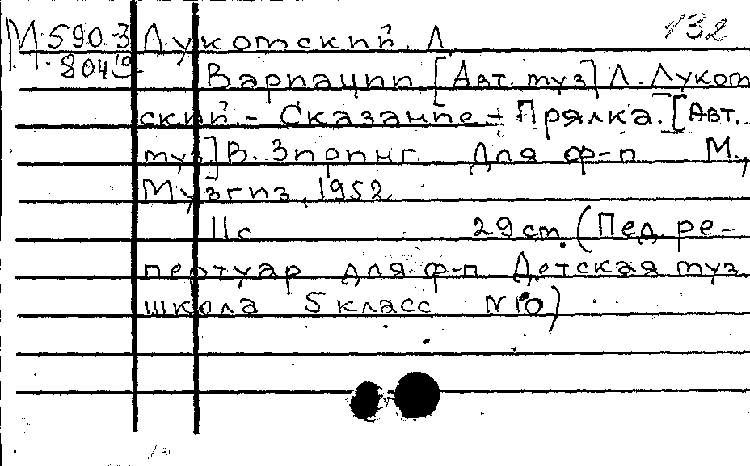 М 590.3 Лукотский. Л 132
8049 Вариации [Авт. муз] Л. Лукот
ский - Сказание - Прялка. [Авт.
муз] В. Зиринг Для ф-п М.,
Музгиз, 1952
11с 29 см. (Пед. ре-
пертуар для ф-п Детская муз
школа 5 класс N10)